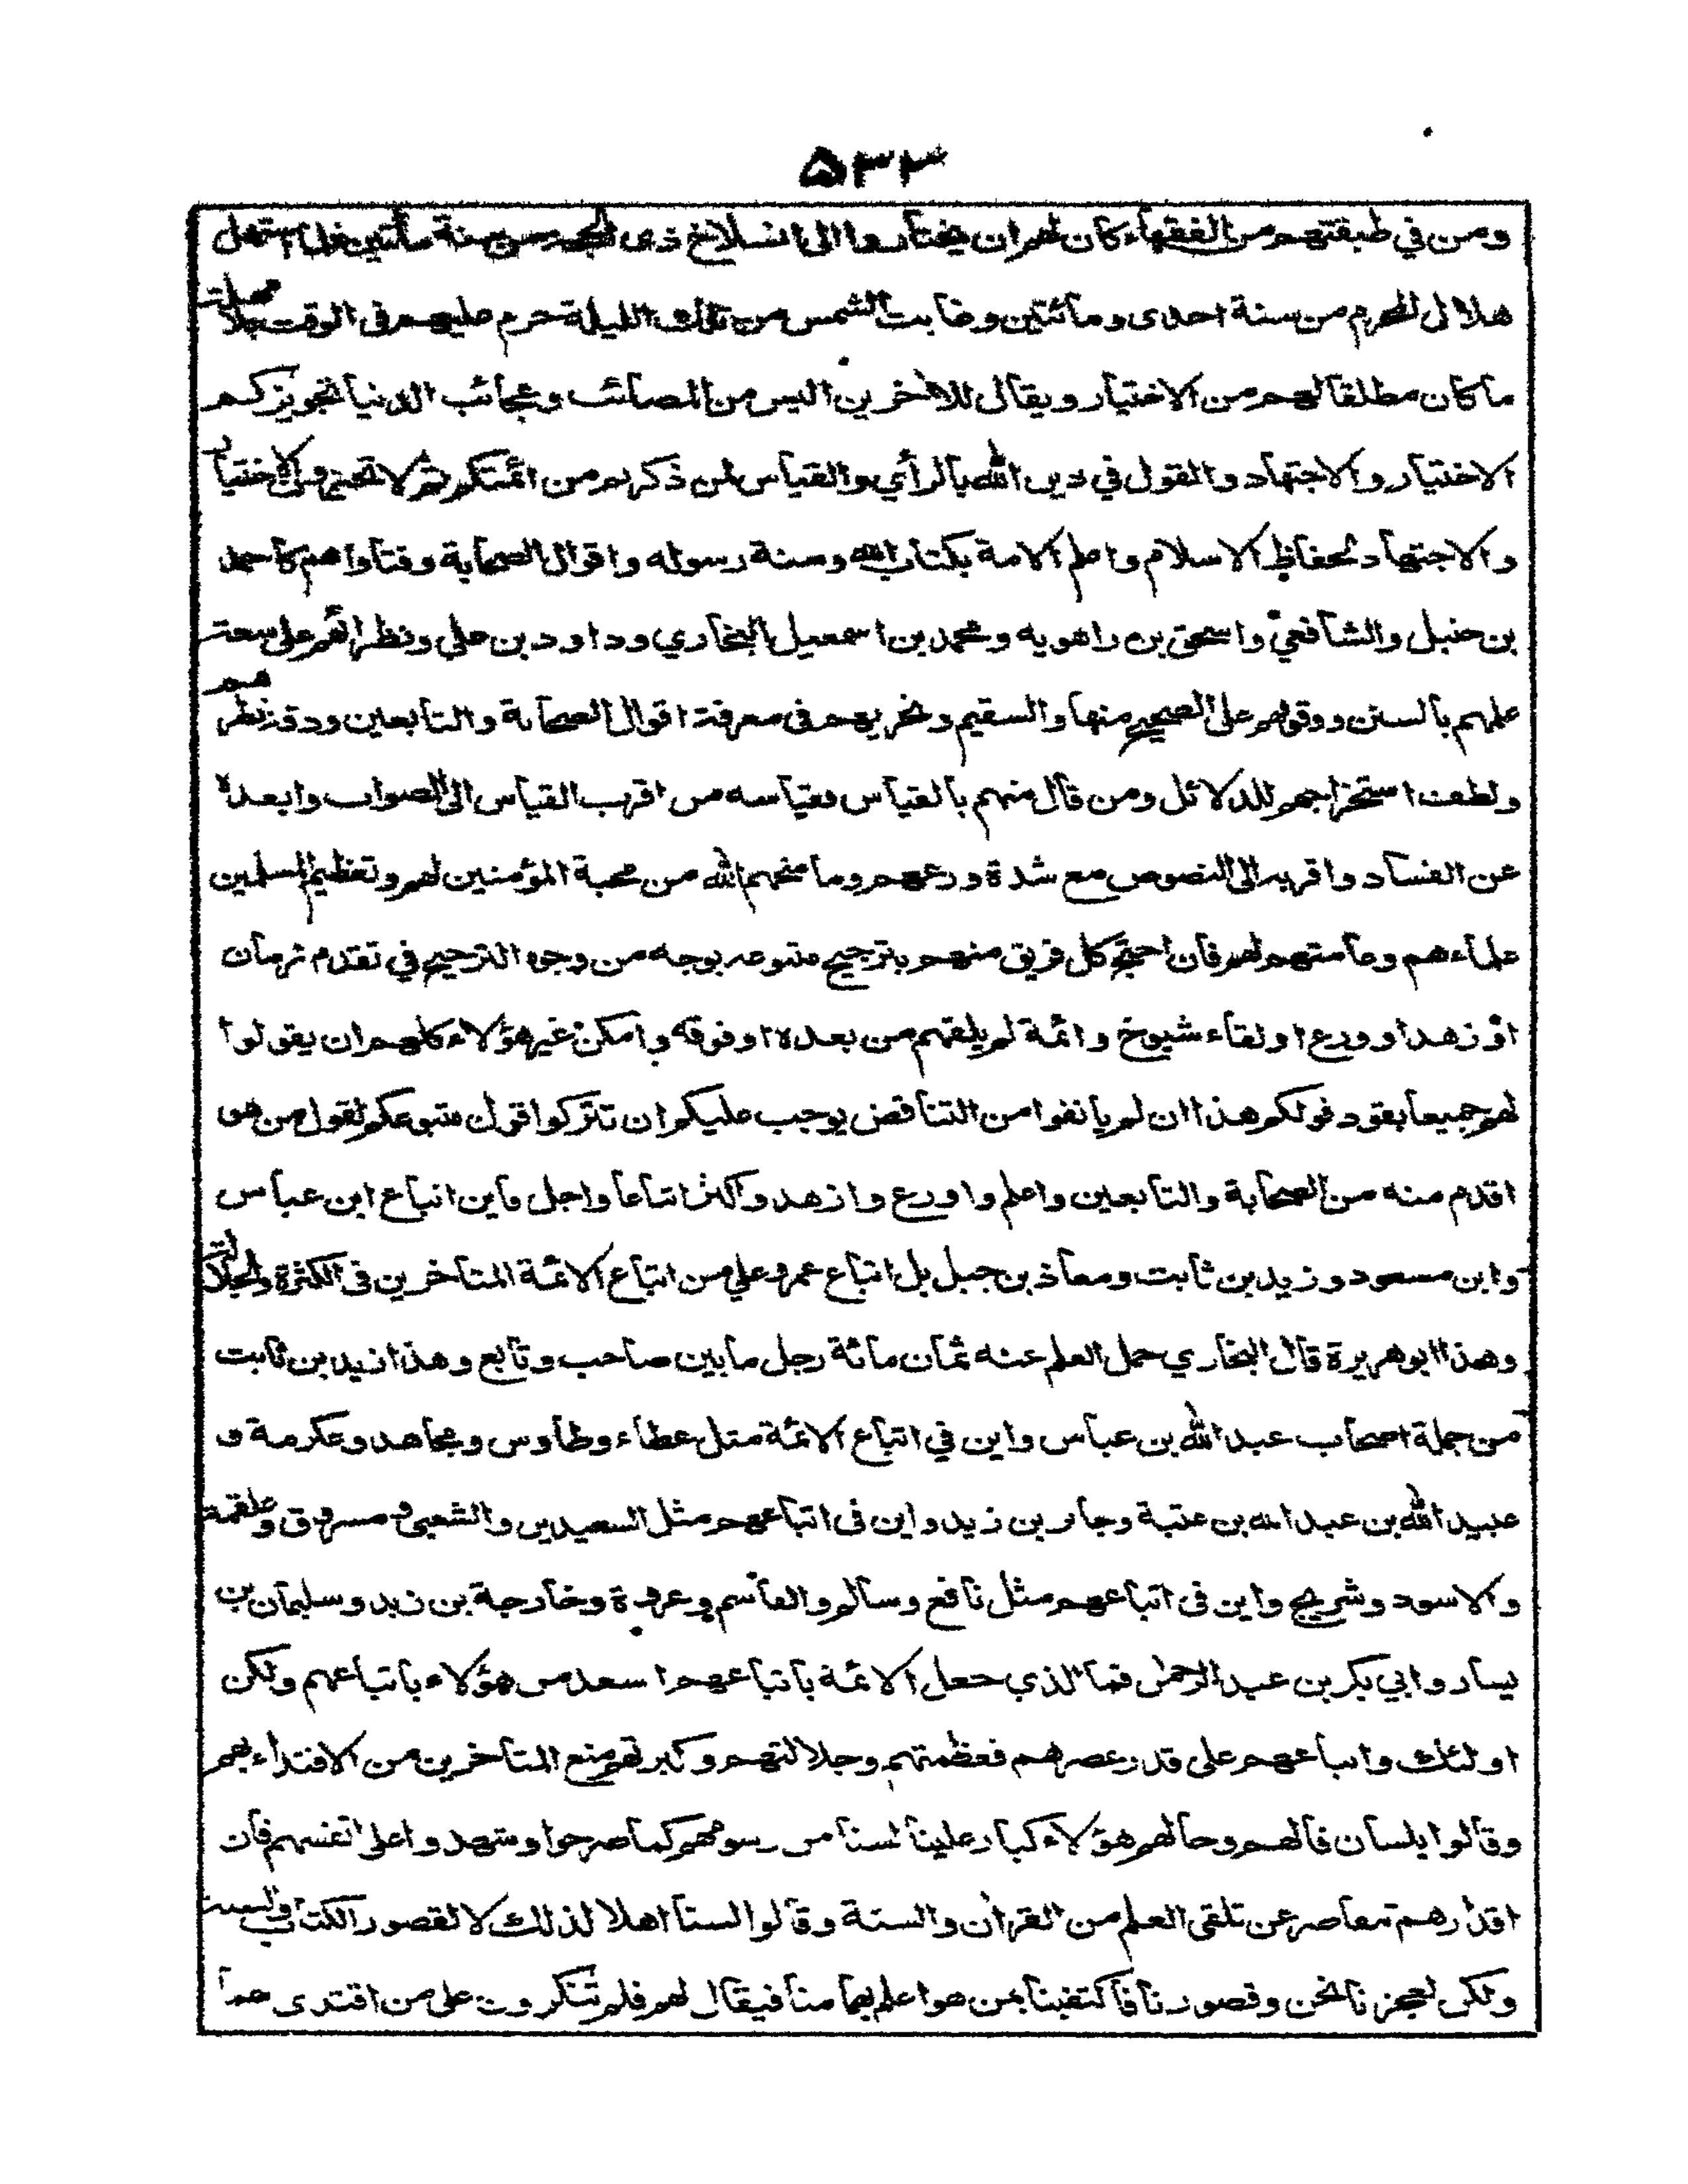 ۵۳۲
ومن في طبقتهم من الفقهاء كان لهم ان يختاروا الى انسلاخ ذى الحجة من سنة مأتين فلما استهل
هلال المحرم من سنة احدى ومائتين وغابت الشمس من تلك الليلة حرم عليهم فى الوقت بلا مهلة
ما كان مطلقا لهم من الاختيار ويقال للاخرين اليس من المصائب وعجائب الدنيا تجويزكم
الاختيار والاجتهاد والقول في دين الله بالرأي والقياس لمن ذكرتم من ائمتكم ثم لا تجيزون الاختيار
والاجتهاد لحفاظ الاسلام واعلم الامة بكتاب الله وسنة رسوله واقوال الصحابة وفتاواهم كأحمد
بن حنبل والشافعي واسحق بن راهويه ومحمد بن اسمعيل البخاري وداود بن علي ونظرائهم على سعة
علمهم بالسنن ووقوفهم على الصحيح منها والسقيم وتحريهم فى معرفة اقوال الصحابة والتابعين ودقة نظرهم
ولطف استخراجهم للدلائل ومن قال منهم بالقياس فقياسه من اقرب القياس الى الصواب وابعده
عن الفساد واقربه الى النصوص مع شدة ورعهم وما منحهم الله من محبة المؤمنين لهم وتعظيم المسلمين
علماءهم وعامتهم لهم فان احتج كل فريق منهم بترجيح متبوعه بوجه من وجوه الترجيح في تقدم زمان
او زهد او ورع او لقاء شيوخ وائمة لم يلقهم من بعده او فوقه وامكن غير هؤلاء كلهم ان يقولوا
لهم جميعا بقود قولكم هذا ان لم يانفوا من التناقض يوجب عليكم ان تتركوا قول متبوعكم لقول من هو
اقدم منه من الصحابة والتابعين واعلم واورع وازهد واكثر اتباعا واجل فاين اتباع ابن عباس
وابن مسعود وزيد بن ثابت ومعاذ بن جبل بل اتباع عمر وعلي من اتباع الائمة المتاخرين فى الكثرة والجلالة
وهذا ابوهريرة قال البخاري حمل العلم عنه ثمان مائة رجل ما بين صاحب وتابع وهذا زيد بن ثابت
من جملة اصحاب عبد الله بن عباس واين في اتباع الائمة مثل عطاء وطاوس ومجاهد وعكرمة و
عبيد الله بن عبد الله بن عتبة وجابر بن زيد واين فى اتباعهم مثل السعيدين والشعبى ومسروق وعلقمة
والاسود وشريح واين فى اتباعهم مثل نافع وسالم والقاسم وعروة وخارجة بن زيد وسليمان بن
يسار وابي بكر بن عبد الرحمن فما الذي جعل الائمة باتباعهم اسعد من هؤلاء باتباعهم ولكن
اولئك واتباعهم على قدر عصرهم فعظمتهم وجلالتهم وكبرهم منع المتاخرين من الاقتداء بهم
وقالوا بلسان قالهم وحالهم هؤلاء كبار علينا لسنا من رسومهم كما صرحوا وشهدوا على انفسهم فان
اقدارهم تتقاصر عن تلقى العلم من القران والسنة وقالوا لسنا اهلا لذلك لا لقصور الكتاب والسنة
ولكن لعجزنا نحن وقصورنا فاكتفينا بمن هو اعلم بهما منا فيقال لهم فلم تنكرون على من اقتدى بهما